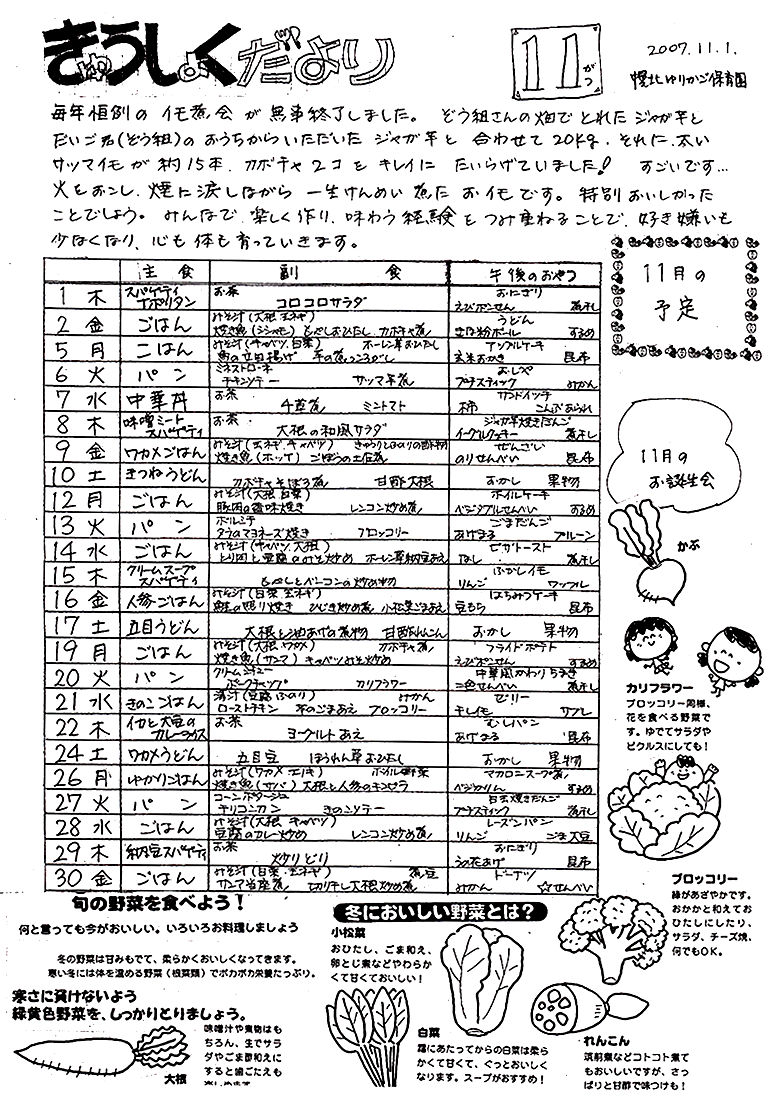 きゅうしょくだより
11がつ
2007.11.1.
幌北ゆりかご保育園
毎年恒例の イモ煮会 が 無事終了しました。 ぞう組さんの畑で とれた ジャガ芋と
だいご君(ぞう組)の おうちからいただいた ジャガ芋と 合わせて 20kg、それに、太い
サツマイモが 約15本、カボチャ 2コを キレイに たいらげていました! すごいです…
火をおこし、煙に涙しながら 一生けんめい 煮た おイモです。特別おいしかった
ことでしょう。みんなで、楽しく作り、味わう経験を つみ重ねることで、好き嫌いも
少なくなり、心も体も育っていきます。
11月の
予定
11月の
お誕生会
主食 副食 午後のおやつ
1 木 スパゲティナポリタン お茶 コロコロサラダ おにぎり えびポンせん 煮干し
2 金 ごはん みそ汁(大根 玉ネギ) 焼き魚(シシャモ) もやしおひたし カボチャ煮 うどん きな粉ボール するめ
5 月 ごはん みそ汁(キャベツ、白菜) ホーレン草おひたし 魚の立田揚げ 芋の煮っころがし アップルケーキ 玄米おかき 昆布
6 火 パン ミネストローネ チキンソテー サツマ芋煮 おしるこ プチスティック みかん
7 水 中華丼 お茶 千草煮 ミニトマト サンドイッチ 柿 こんぶあられ
8 木 味噌ミートスパゲティ お茶 大根の和風サラダ ジャガ芋焼きだんご イーグルクッキー 煮干し
9 金 ワカメごはん みそ汁(玉ネギ、キャベツ) きゅうりとのりの酢の物 焼き魚(ホッケ) ごぼうの土佐煮 ぜんざい のりせんべい 昆布
10 土 きつねうどん カボチャそぼろ煮 甘酢大根 おかし 果物
12 月 ごはん みそ汁(大根 白菜) 豚肉の香味焼き レンコン炒め煮 ボイルケーキ ベジタブルせんべい するめ
13 火 パン ボルシチ タラのマヨネーズ焼き ブロッコリー ごまだんご あげまる プルーン
14 水 ごはん みそ汁(キャベツ、大根) とり肉と豆腐のみそ炒め ホーレン草納豆あえ ピザトースト なし 煮干し
15 木 クリームスープスパゲティ もやしとベーコンの炒め物 ふかしイモ りんご ワッフル
16 金 人参ごはん みそ汁(白菜 玉ネギ) 鮭の照り焼き ひじき炒め煮 小松菜ごまあえ はちみつケーキ 豆もち 昆布
17 土 五目うどん 大根と油あげの煮物 甘酢れんこん おかし 果物
19 月 ごはん みそ汁(大根、ワカメ) カボチャ煮 焼き魚(サンマ) キャベツみそ炒め フライドポテト えびポンせん するめ
20 火 パン クリームシチュー ポークチャップ カリフラワー 中華風かわりちまき 二色せんべい 煮干し
21 水 きのこごはん 清汁(豆腐 ふのり) みかん ローストチキン 春菊ごまあえ ブロッコリー ゼリー キレイモ サブレ
22 木 イカと大豆のカレーライス お茶 ヨーグルトあえ むしパン あげまる 昆布
24 土 ワカメうどん 五目豆 ほうれん草おひたし おかし 果物
26 月 ゆかりごはん みそ汁(ワカメ エノキ) ボイル野菜 焼き魚(サバ) 大根と人参のキンピラ マカロニスープ煮 ベジかりん するめ
27 火 パン コーンポタージュ チリコンカン きのこソテー 白玉焼きだんご プチスティック 煮干し
28 水 ごはん みそ汁(大根、キャベツ) 豆腐のカレー炒め レンコン炒め煮 レーズンパン りんご ごま大豆
29 木 納豆スパゲティ お茶 炒りどり おにぎり うの花あげ 昆布
30 金 ごはん みそ汁(白菜・玉ネギ) 煮豆 サンマ当座煮 切り干し大根炒め煮 ドーナツ みかん ☆せんべい
かぶ
カリフラワー
ブロッコリー同様、
花を食べる野菜で
す。ゆでてサラダや
ピクルスにしても!
ブロッコリー
緑があざやかです。
おかかと和えてお
ひたしにしたり、
サラダ、チーズ焼、
何でもOK。
旬の野菜を食べよう!
何と言っても今がおいしい。いろいろお料理しましょう
冬の野菜は甘みもでて、柔らかくおいしくなってきます。
寒い冬には体を温める野菜(根菜類)でポカポカ栄養たっぷり。
寒さに負けないよう
緑黄色野菜を、しっかりとりましょう。
味噌汁や煮物はも
ちろん、生でサラ
ダやごま酢和えに
すると歯ごたえも
大根
冬においしい野菜とは?
小松菜
おひたし、ごま和え、
卵とじ煮などやわらか
くて甘くておいしい!
白菜
霜にあたってからの白菜は柔ら
かくて甘くて、ぐっとおいしく
なります。スープがおすすめ!
れんこん
筑前煮などコトコト煮て
もおいしいですが、さっ
ぱりと甘酢で味つけも!